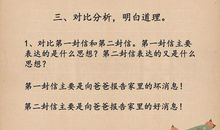 三、对比分析，明白道理。
1、对比第一封信和第二封信。第一封信主要
表达的是什么思想？第二封信表达的又是什么
思想？
第一封信主要是向爸爸报告家里的坏消息！
第二封信主要是向爸爸报告家里的好消息！